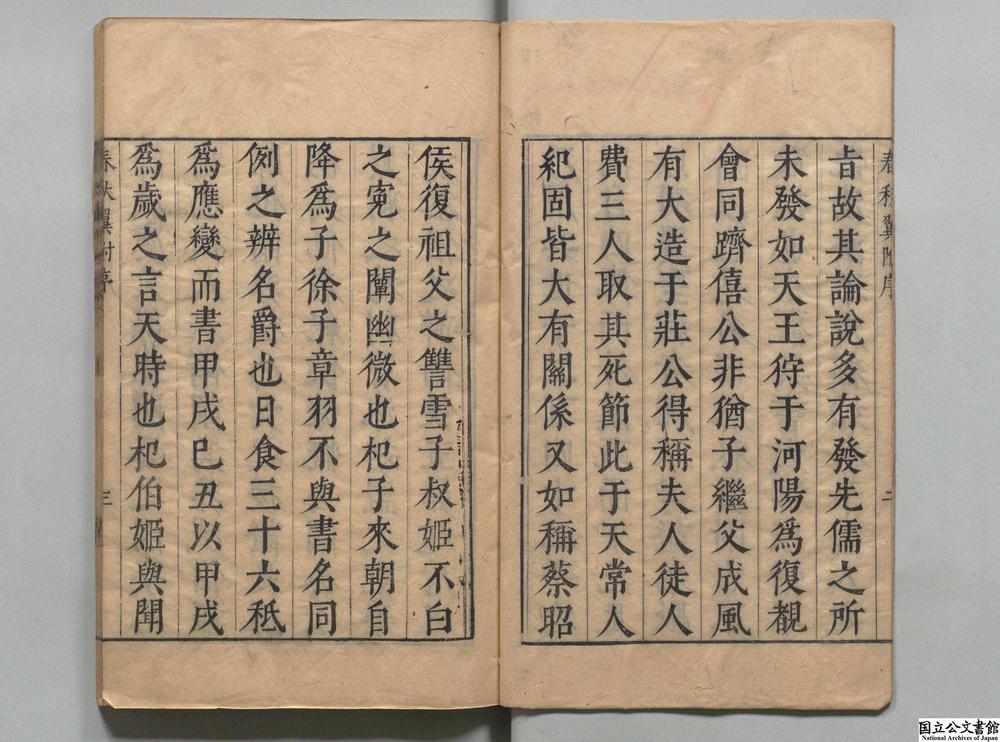 春秋翼附序
二
旨故其論說多有發先儒之所
未發如天王狩于河陽爲復覩
會同躋僖公非猶子繼父成風
有大造于莊公得稱夫人徒人
費三人取其死節此于天常人
紀固皆大有關係又如稱蔡昭
侯復祖父之讐雪子叔姬不白
之寃之闡幽微也杞子來朝自
降爲子徐子章羽不與書名同
例之辨名爵也日食三十六秪
爲應變而書甲戌巳丑以甲戌
爲歲之言天時也杞伯姬與聞
春秋翼附序
三
国立公文書館
National Archives of Japan